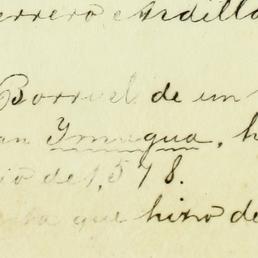 errero Ardilla
Borruel de un
an Ymagua, h
io de 1,578.
ta que hizo de